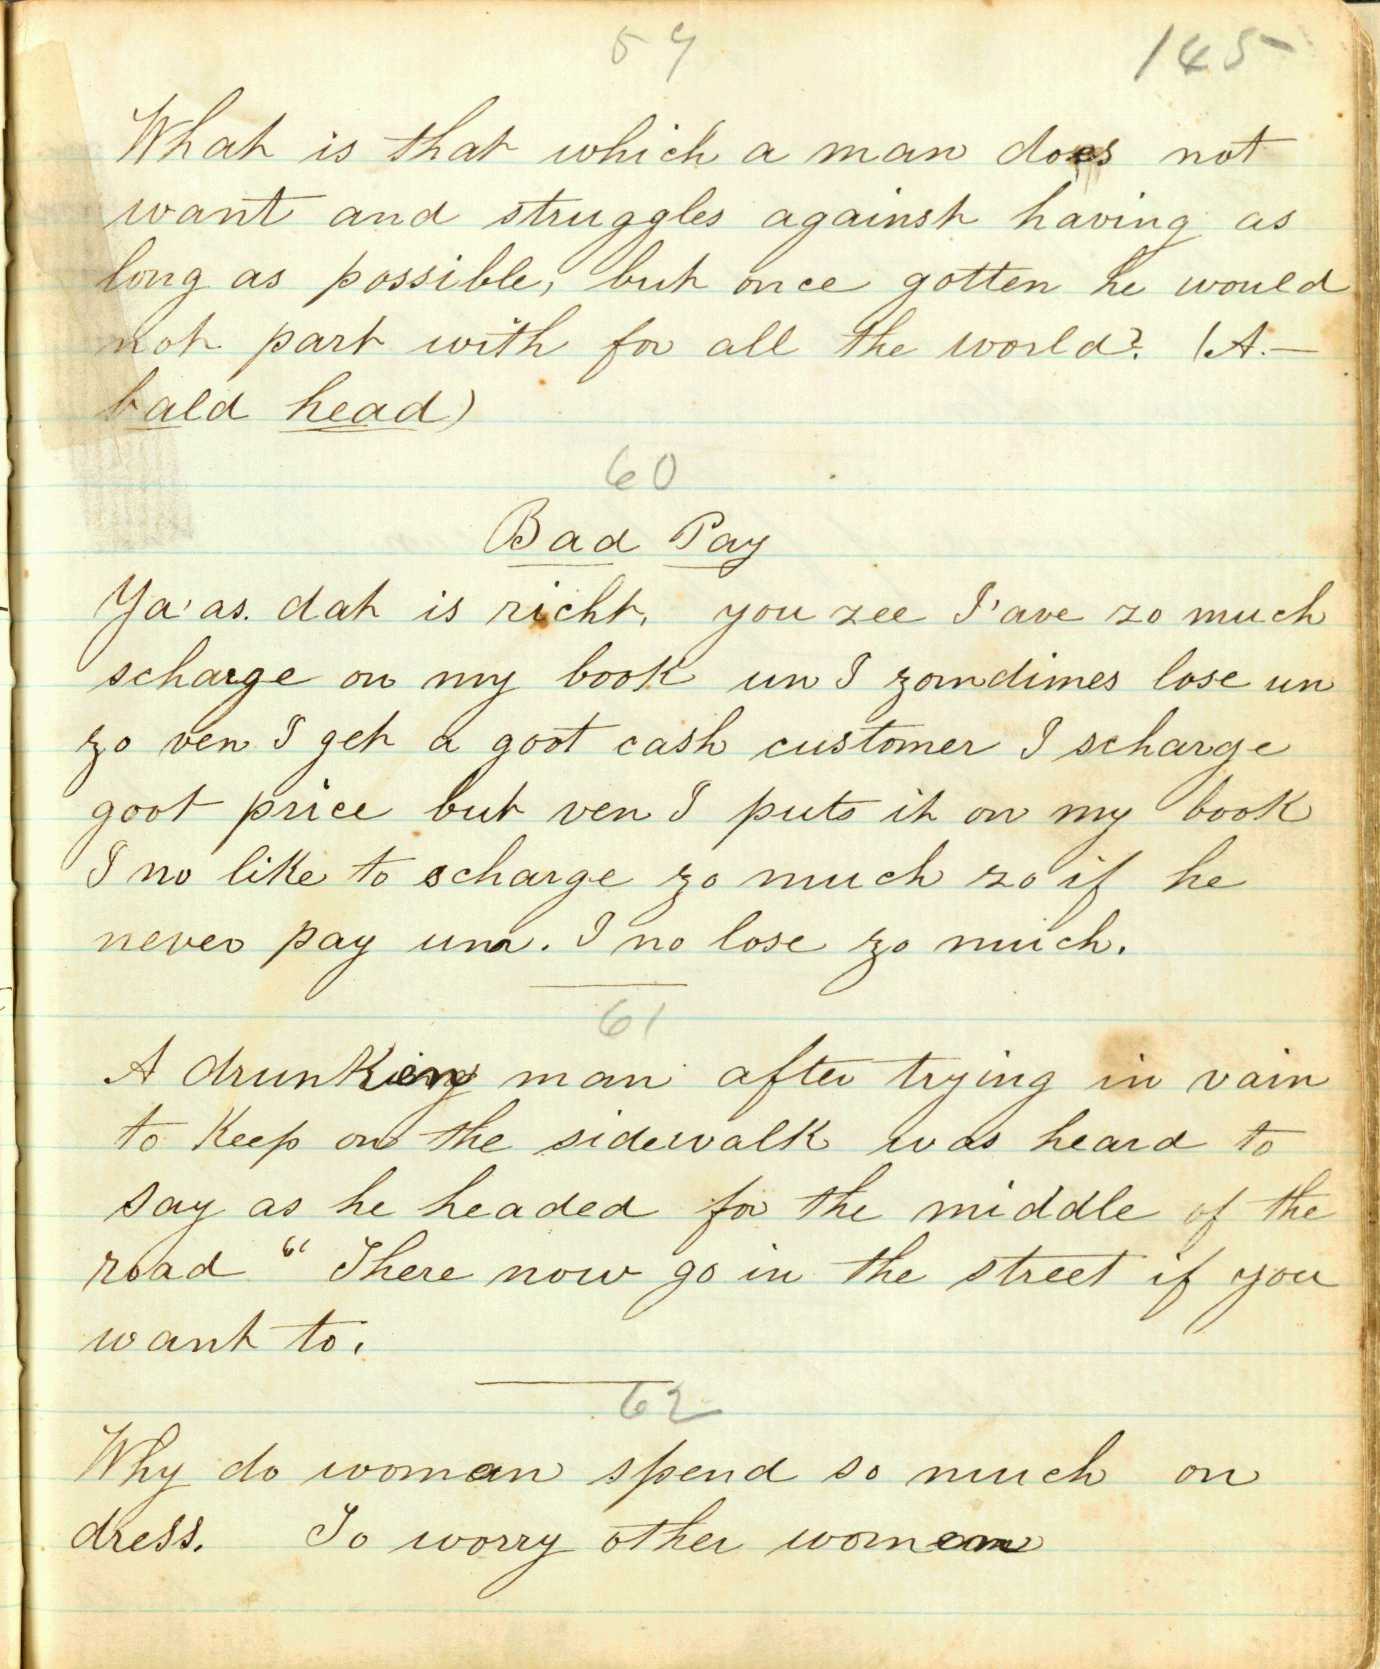 59
145
What is that which a man does not
want and struggles against having as
long as possible, but once gotten he would
not part with for all the world? (A.—
bald head)
60
Bad Pay
Ya'as. dat is richt, you zee I'ave zo much
scharge on my book un I zomdimes lose un
zo ven I get a goot cash customer I scharge
goot price but ven I puts it on my book
I no like to scharge zo much zo if he
never pay um. I no lose zo much.
61
A drunken man after trying in vain
to keep on the sidewalk was heard to
say as he headed for the middle of the
road “ There now go in the street if you
want to.
62
Why do woman spend so much on
dress. To worry other women